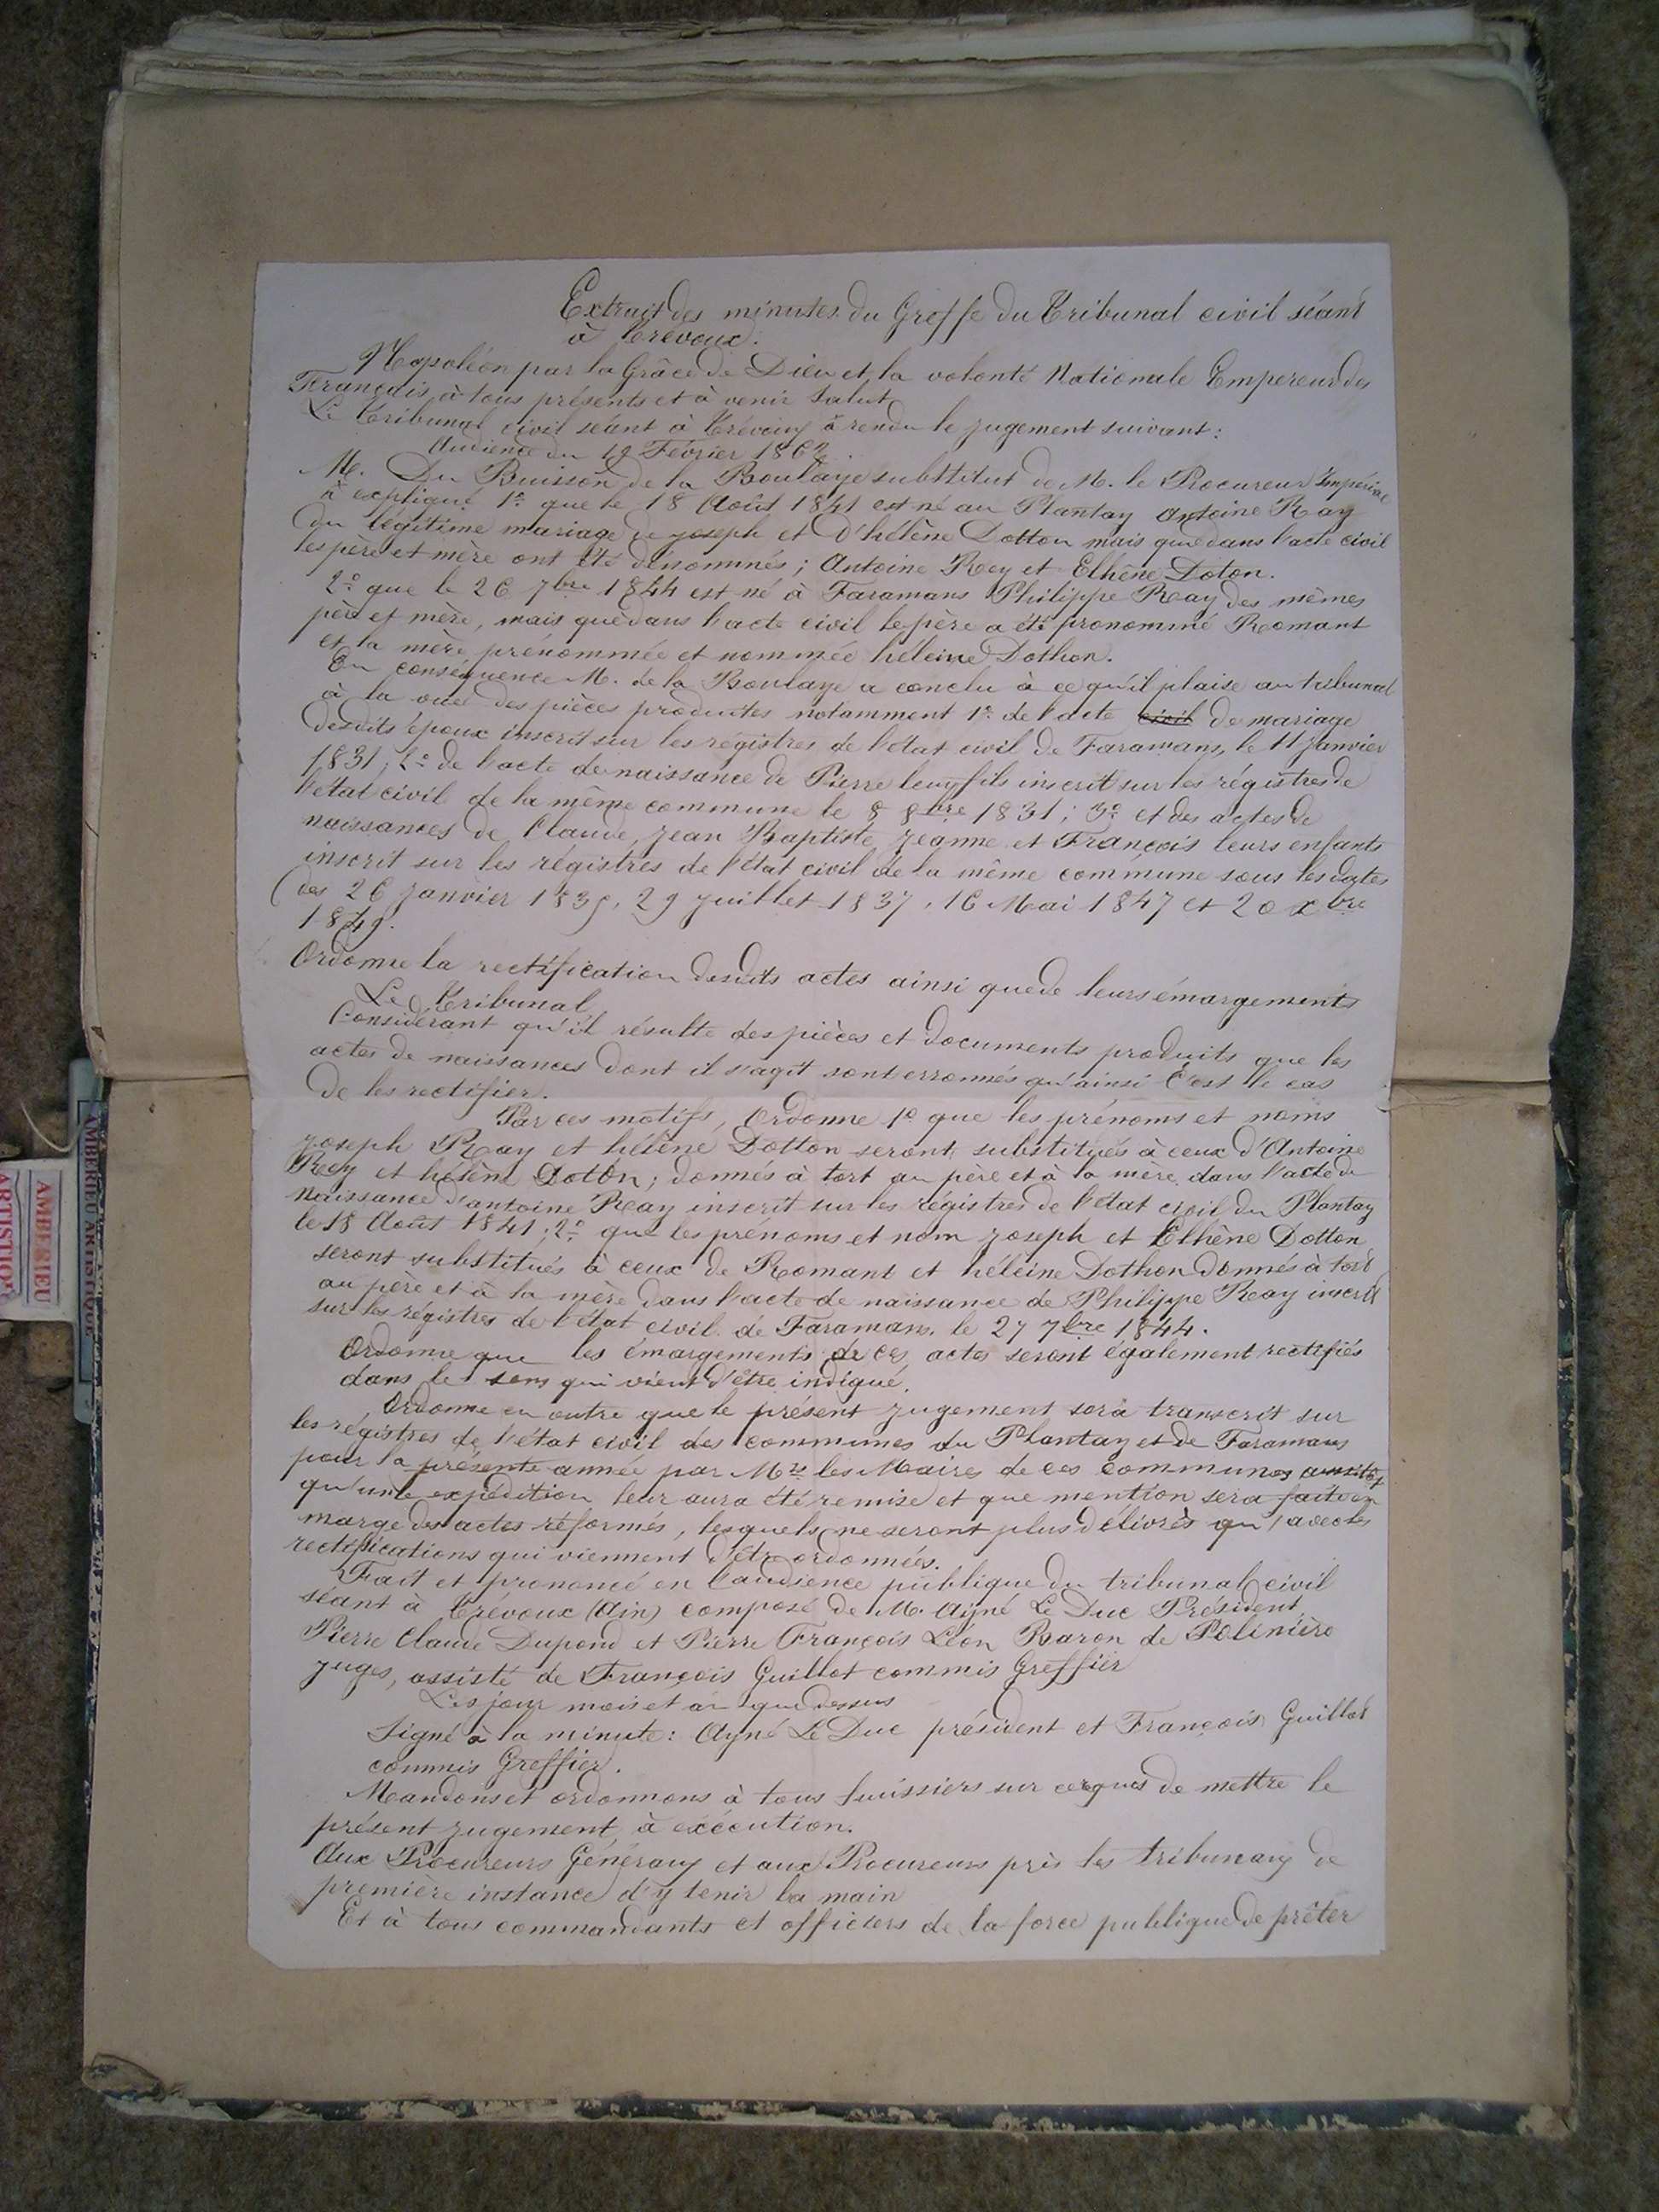 Extrait des minutes du Greffe du Tribunal civil séant
à Trévoux.
Napoléon par la Grâce de Dieu et la volonté Nationale Empereur des
Français, à tous présents et à venir Salut
Le Tribunal civil séant à Trévoux à rendu le jugement suivant:
Audience du Février 186
M. Du Buisson de la Boulaye substitut de M. le Procureur Impérial
à expliqué 1º que le 18 Août 1841 est né au Plantay Antoine Ray
du légitime mariage de joseph et d'hélène Dotton mais que dans l'acte civil
les père et mère ont été dénommés; Antoine Rey et Elhène Doton.
2º que le 26 7bre 1844 est né à Faramans Philippe Ray des mêmes
père et mère, mais que dans l'acte civil le père a été pronommé Romant
et la mère prénommée et nommée héleine Dothon.
En conséquence M. de la Boulaye a conclu à ce qu'il plaise au tribunal
à la vue des pièces produites notamment 1º de l'acte civil de mariage
desdits époux inscrit sur les régistres de l'état civil de Faramans, le 11 janvier
1831; 2º de l'acte de naissance de Pierre leur fils inscrit sur les régistres de
l'état civil de la même commune le 8 8bre 1831; 3º et des actes de
naissances de Claude, Jean Baptiste, Jeanne et François leurs enfants
inscrit sur les régistres de l'état civil de la même commune sous les dates
des 26 janvier 1835, 29 juillet 1837, 16 Mai 1847 et 20 xbre
1849.
Ordonne la rectification desdits actes ainsi que de leurs émargements
Le Tribunal
Considérant qu'il résulte des pièces et documents produits que les
actes de naissances dont il s'agit sont erronnés qu'ainsi c'est le cas
de les rectifier.
Par ces motifs, Ordonne 1º que les prénoms et noms
joseph Ray et hélène Dotton seront substitués à ceux d'Antoine
Rey et hélène Doton; donnés à tort au père et à la mère dans l'acte de
naissance d'antoine Ray inscrit sur les régistres de l'état civil du Plantay
le 18 Août 1841; 2º que les prénoms et nom joseph et Elhène Dotton
seront substitués à ceux de Romant et héleine Dothon donnés à tort
au père et à la mère dans l'acte de naissance de Philippe Ray inscrit
sur les régistres de l'état civil de Faramans le 27 7bre 1844.
Ordonne que les émargements de ces actes seront également rectifiés
dans le sens qui vient d'être indiqué.
Ordonne en outre que le présent jugement sera transcrit sur
les régistres de l'état civil des communes du Plantay et de Faramans
pour la présente année par Mrs les Maires de ces communes aussitôt
qu'une expédition leur aura été remise et que mention sera faite en
marge des actes réformés, lesquels ne seront plus délivrés qu'avec les
rectifications qui viennent d'être ordonnées.
Fait et prononcé en l'audience publique du tribunal civil
séant à Trévoux (Ain) composé de M. Ayné Le Duc Président
Pierre Claude Dupond et Pierre François Léon Baron de Polinière
juges, assisté de François Guillot commis Greffier
Les jour mois et an que dessus
Signé à la minute: Ayné Le Duc président et François Guillot
commis Greffier.
Mandons et ordonnons à tous huissiers sur ce requis de mettre le
présent jugement à exécution.
Aux Procureurs Généraux et aux Procureurs près les tribunaux de
première instance d'y tenir la main
Et à tous commandants et officiers de la force publique de prêter
AMBERIEU ARTISTIQUE
AMBERIEU
ARTISTIQUE